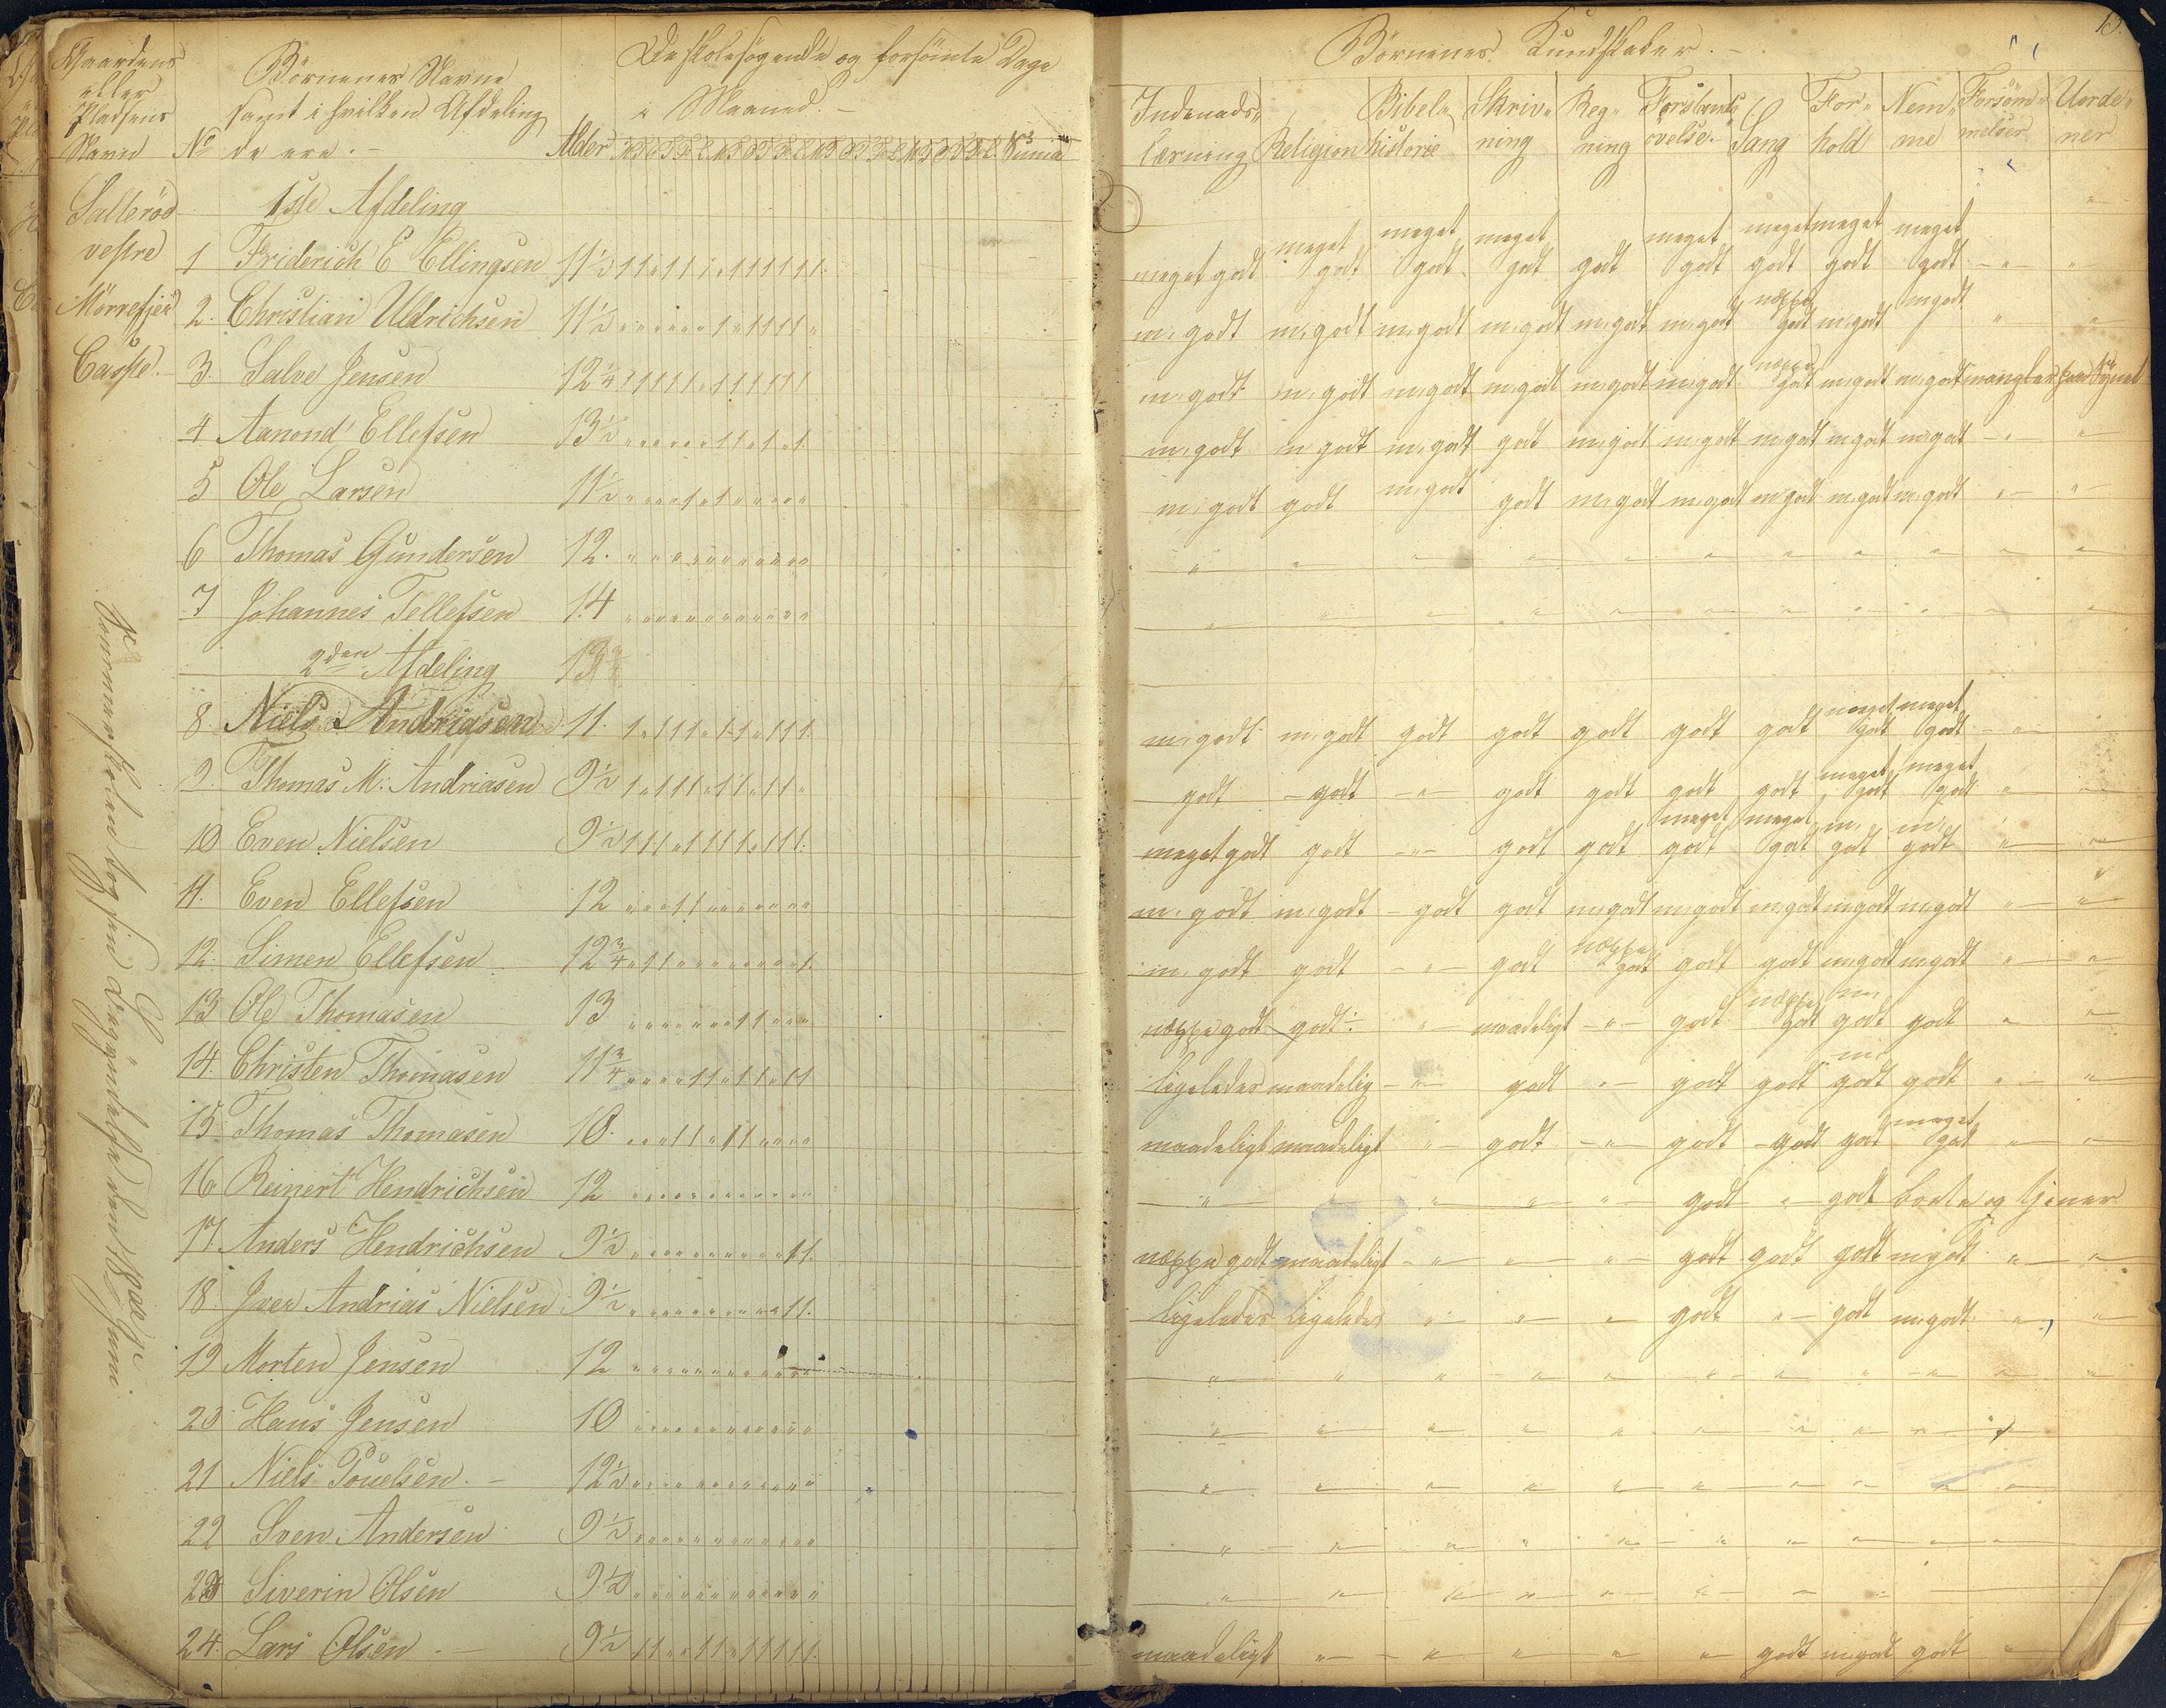 Gaardens
eller
Pladsens
Navn
No
Börnenes Navne
samt i hvilken Afdeling
de ere.
Alder
De skolesögende og forsömte Dage
i Maaned.
Summa
Salleröd 1ste Afdeling
vestre 1 Friderich E Ellingsen 11 1/2
Mörrefjer 2. Christian Uldrichsen 11 1/2
Caspe. 3. Salve Jensen 12 1/4
4 Aanond Ellefsen 13 1/2
5 Ole Larsen 11 1/2
6 Thomas Gundersen 12.
7 Johannes Tellefsen 14
2den Afdeling 13
8. Niels Andriasen 11.
9. Thomas M. Andriasen 9 1/2
10 Even Nielsen 9 1/2
11. Even Ellefsen 12
12. Simen Ellefsen 12 3/4
13 Ole Thomasen 13
14. Christen Thomasen 11 3/4
15 Thomas Thomasen 10.
16 Reinert Hendrichsen 12
17 Anders Hendrichsen 9 1/2
18. Jver Andrias Nielsen 9 1/2
19 Morten Jensen 12
20 Hans Jensen 10
21 Niels Pouelsen. 12 1/2
22 Sven Andersen 9 1/2
23 Siverin Olsen 9 1/2
24. Lars Olsen 9 1/2
Sommerskolen tog sin Begyndelse den 18de Juni.
Börnenes Kundskaber.
Indenads-
læsning
Religion
Bibel-
historie
Skriv-
ning
Reg-
ning
Forstands-
övelse.
Sang
For-
hold
Nem-
me
Forsöm-
melser
Uorde-
ner
meget godt meget godt meget godt meget godt godt meget godt meget godt meget godt meget godt " "
m. godt m. godt m. godt m. godt m. godt m. godt neppe godt m. godt m godt " "
m. godt m. godt m. godt m. godt m. godt m. godt neppe godt m. godt m. godt mangler paa Synet
m. godt m godt m. godt godt m. godt m. godt m. godt m. godt m. godt " "
m. godt godt m. godt godt m. godt m. godt m. godt m. godt m. godt " "
" " " " " " " " " " "
" " " " " " " " " " "
m. godt m. godt godt godt godt godt godt meget godt meget godt "
godt godt " godt godt godt godt meget godt meget godt " "
meget godt godt " godt godt meget godt meget godt m. godt m. godt " "
m. godt m. godt godt godt m. godt m. godt m. godt m. godt m. godt " "
m. godt godt " godt neppe godt godt godt m. godt m. godt " "
neppe godt godt " maadeligt " godt neppe godt m. godt godt " "
ligeledes maadelig " godt " godt godt m. godt godt " "
maadeligt maadeligt " godt " godt godt godt meget godt " "
" " " " " godt " godt borte og tjener
neppe godt maadeligt " " " godt godt godt m. godt " "
ligeledes ligeledes " " " godt " godt m. godt " "
" " " " " " " " " " "
" " " " " " " " "
" " " " " " " " " "
" " " " " " " " " "
" " " " " " " "
maadeligt " " " " " godt m. godt godt "